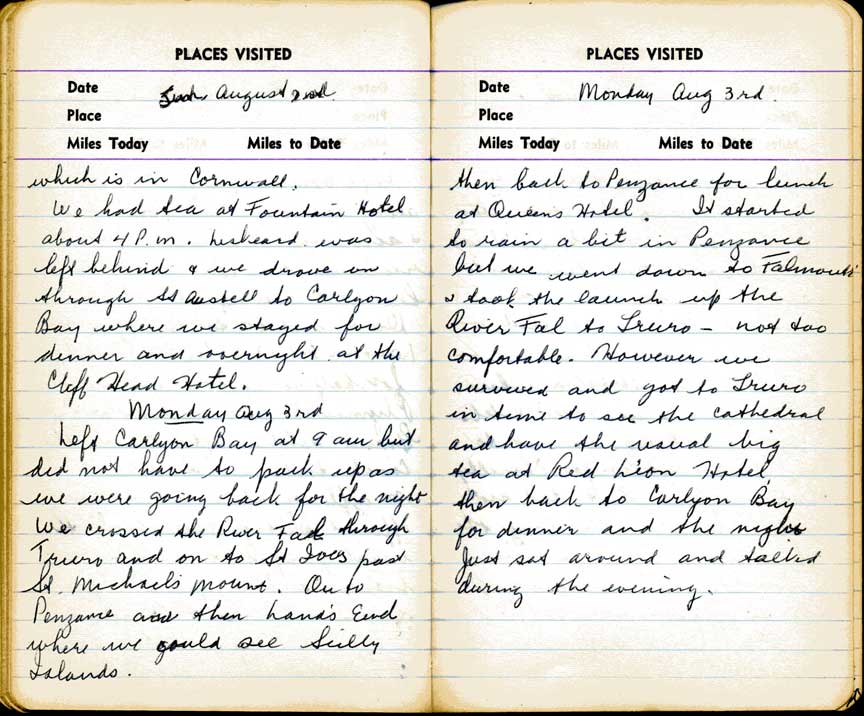 PLACES VISITED
Date August 2nd
Place
Miles Today Miles to Date
which is in Cornwall.
We had tea at Fountain Hotel
about 4 P.m. Lisheard was
left behind & we drove on
through St Austell to Carlyon
Bay where we stayed for
dinner and overnight at the
Cliff Head Hotel.
Monday Aug 3rd
Left Carlyon Bay at 9 am but
did not have to pack up as
we were going back for the night
We crossed the River Fal through
Truro and on to St Ives past
St. Michael's Mount. On to
Penzance and then Land's End
where we could see Scilly
Islands.
PLACES VISITED
Date Monday Aug 3rd.
Place
Miles Today Miles to Date
then back to Penzance for lunch
at Queens Hotel. It started
to rain a bit in Penzance
but we went down to Falmouth
& took the launch up the
River Fal to Truro - not too
comfortable. However we
survived and got to Truro
in time to see the cathedral
and have the usual big
tea at Red Lion Hotel,
then back to Carlyon Bay
for dinner and the night
Just sat around and talked
during the evening.